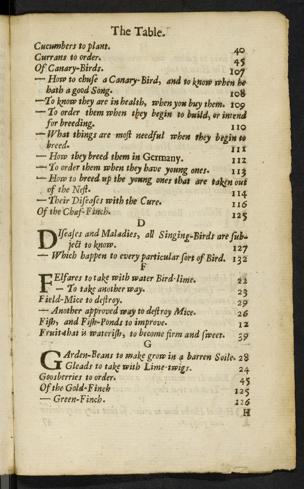 The Table.
Cucumbers to plant. 40
Currans to order. 45
Of Canary-Birds. 107
— How to chuse a Canary-Bird, and to know when he
hath a good Song. 108
— To know they are in health, when you buy them. 109
— To order them when they begin to build, or intend
for breeding. 110
— What things are most needful when they begin to
breed. 111
— How they breed them in Germany. 112
— To order them when they have young ones. 113
— How to breed up the young ones that are taken out
of the Nest. 114
— Their Diseases with the Cure. 116
Of the Chaf-Finch. 125
D
Diseases and Maladies, all Singing-Birds are sub-
ject to know. 127
— Which happen to every particular sort of Bird. 132
F
Felfares to take with water Bird-lime. 22
— To take another way. 23
Field-Mice to destroy. 29
— Another approved way to destroy Mice. 26
Fish, and Fish-Ponds to improve. 12
Fruit that is waterish, to become firm and sweet. 39
G
Garden-Beans to make grow in a barren Soile. 28
Gleads to take with Lime-twigs. 24
Goosberries to order. 45
Of the Gold-Finch 125
— Green-Finch. 126
H